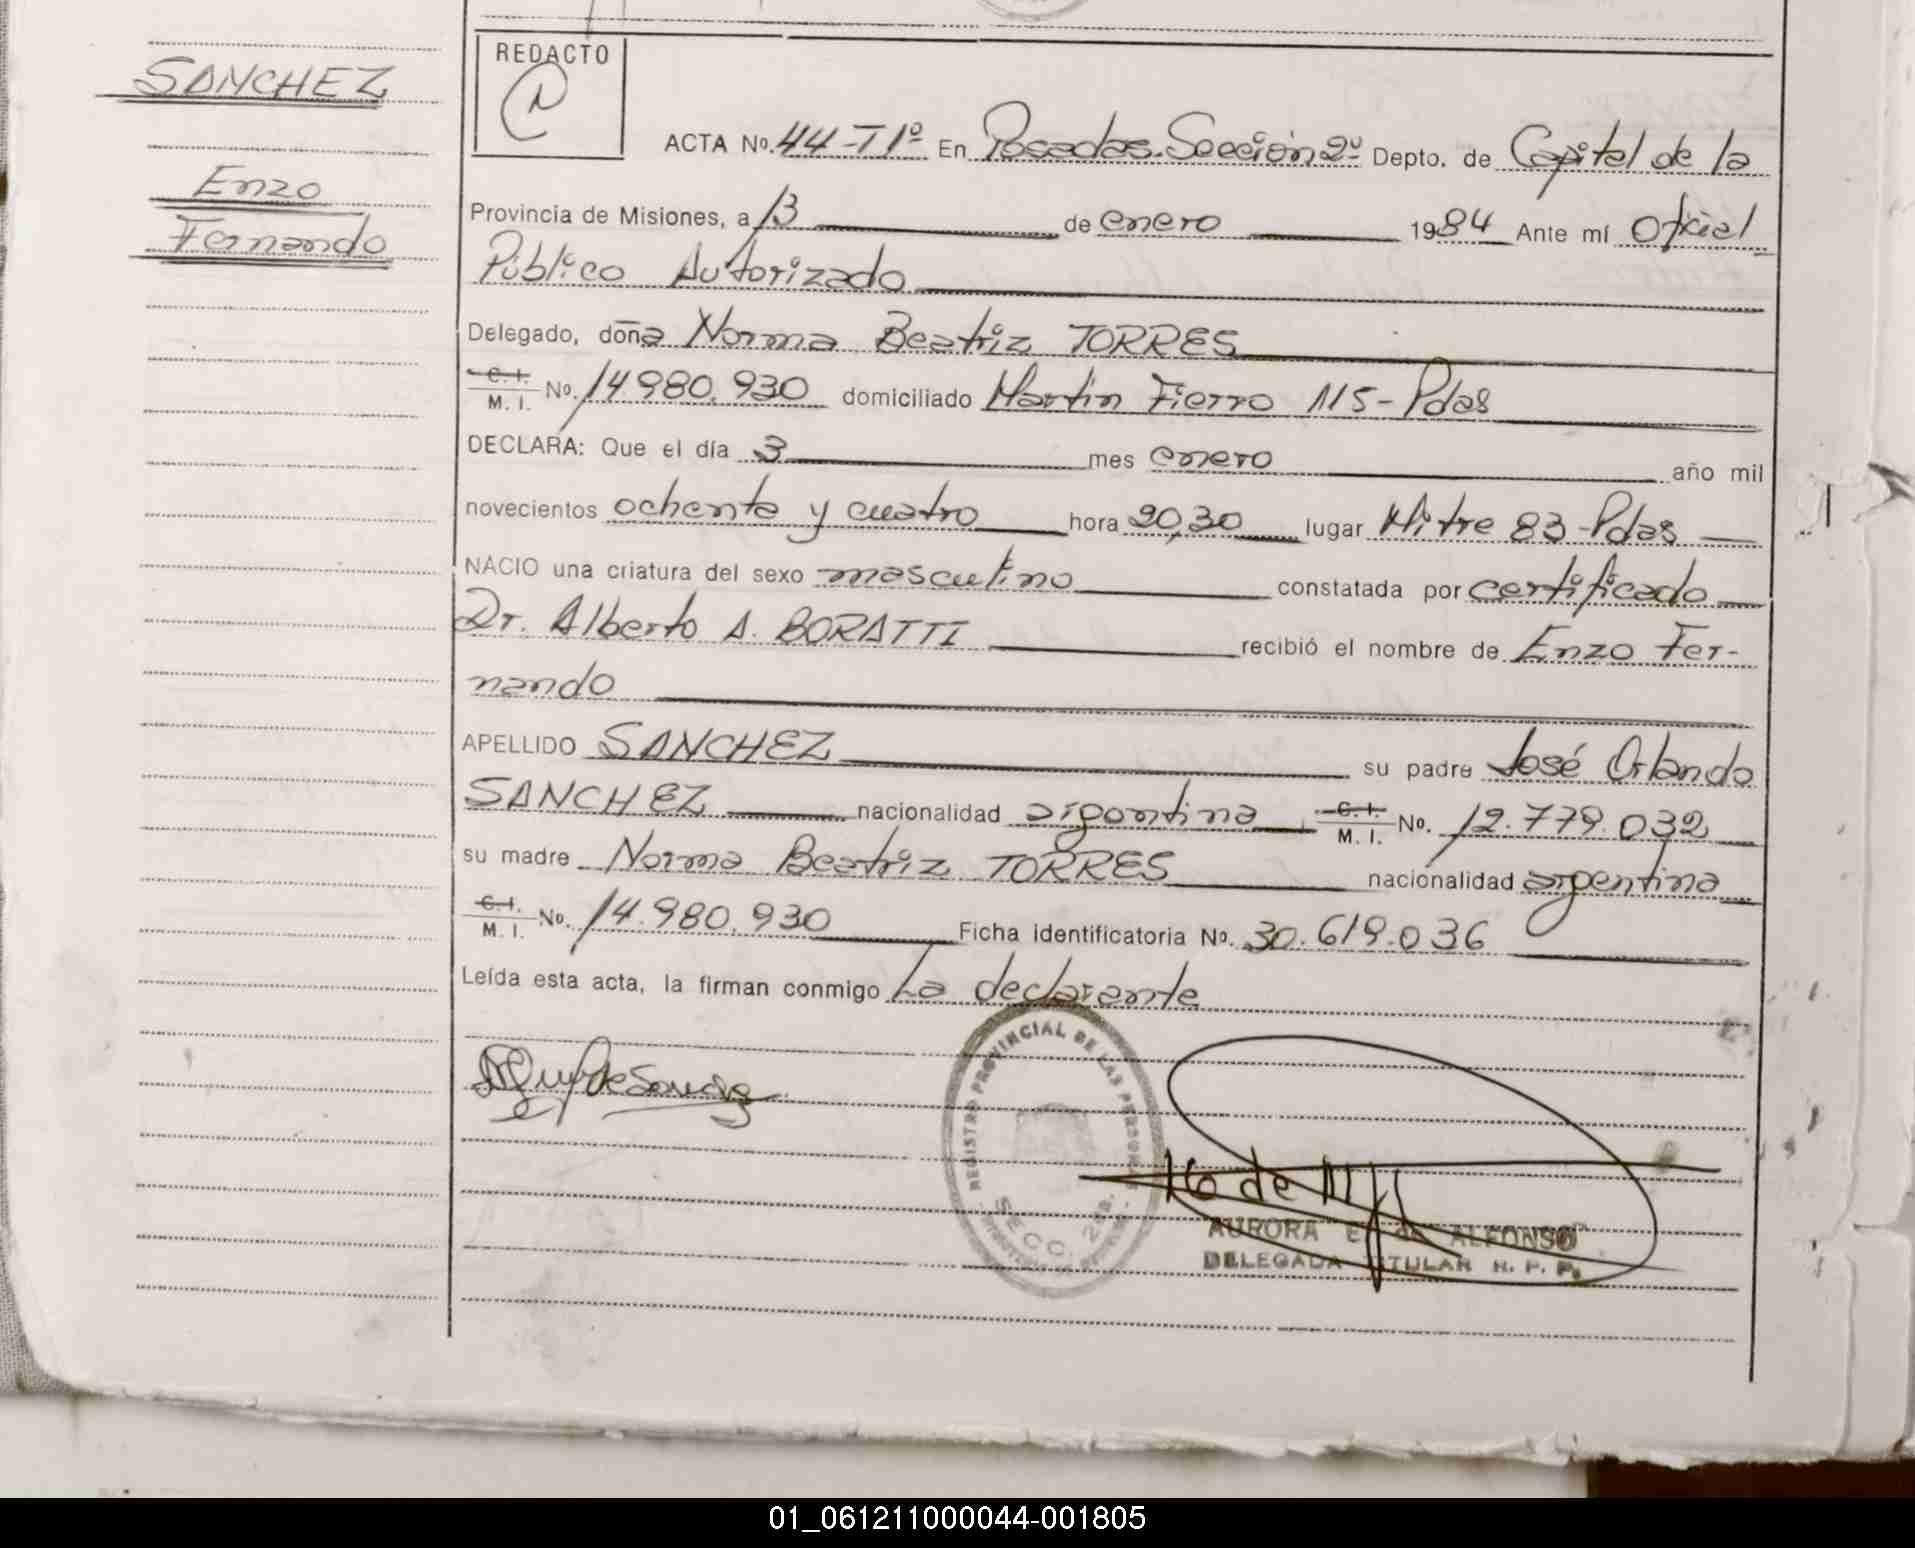 SANCHEZ
Enzo
Fernando
REDACTO
ACTA Nº. 44-T1º En Posadas. Sección 2º Depto. de Capital de la
Provincia de Misiones, a 13 de enero 1984 Ante mí Oficial
Público Autorizado
Delegado, doña Norma Beatriz TORRES
C. I. M. I. Nº. 14.980.930 domiciliado Martin Fierro 115-Pdas
DECLARA: Que el día 3 mes enero año mil
novecientos ochenta y cuatro hora 20,30 lugar Mitre 83-Pdas
NACIO una criatura del sexo masculino constatada por certificado
Dr. Alberto A. BORATTI recibió el nombre de Enzo Fer-
nando
APELLIDO SANCHEZ su padre José Orlando
SANCHEZ nacionalidad argentina C. I. M. I. Nº. 12.779.032
su madre Norma Beatriz TORRES nacionalidad argentina
C. I. M. I. Nº. 14.980.930 Ficha identificatoria Nº. 30.619.036
Leída esta acta, la firman conmigo La declarante
REGISTRO PROVINCIAL DE LAS PERSONAS
SECC. 2da.
16 de
AURORA E. de ALFONSO
DELEGADA TITULAR R. P. P.
01_061211000044-001805